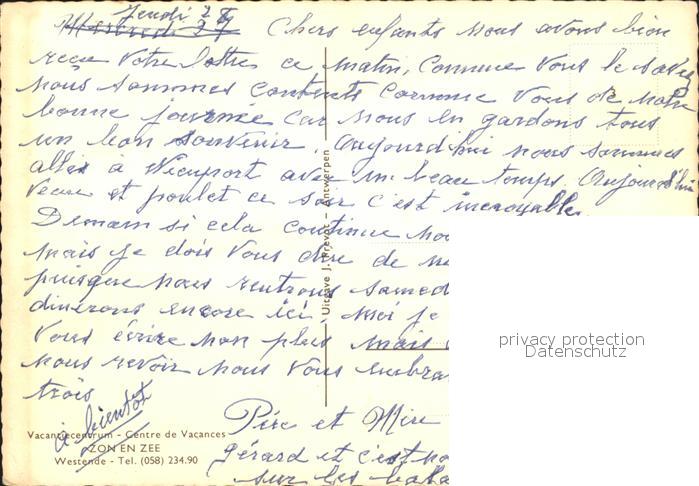 Jeudi
Mercredi
Chers enfants nous avons bien
reçu votre lettre ce matin, comme vous le savez
nous sommes contents comme vous de notre
bonne journée car nous en gardons tous
un bon souvenir. Aujourd'hui nous sommes
allés à Nieuport avec un beau temps. Aujourd'hui
et poulet ce soir c'est incroyable.
Demain si cela continue
mais je dois vous dire de
puisque nous rentrons
dinerons encore ici, Moi je
vous écrire non plus mais
nous revoir nous vous
trois
à bientôt
Père et Mère
Gérard et c'est
sur les
Uitgave J. Prevot - Antwerpen
Vacantiecentrum - Centre de Vacances
ZON EN ZEE
Westende - Tel. (058) 234.90
privacy protection
Datenschutz